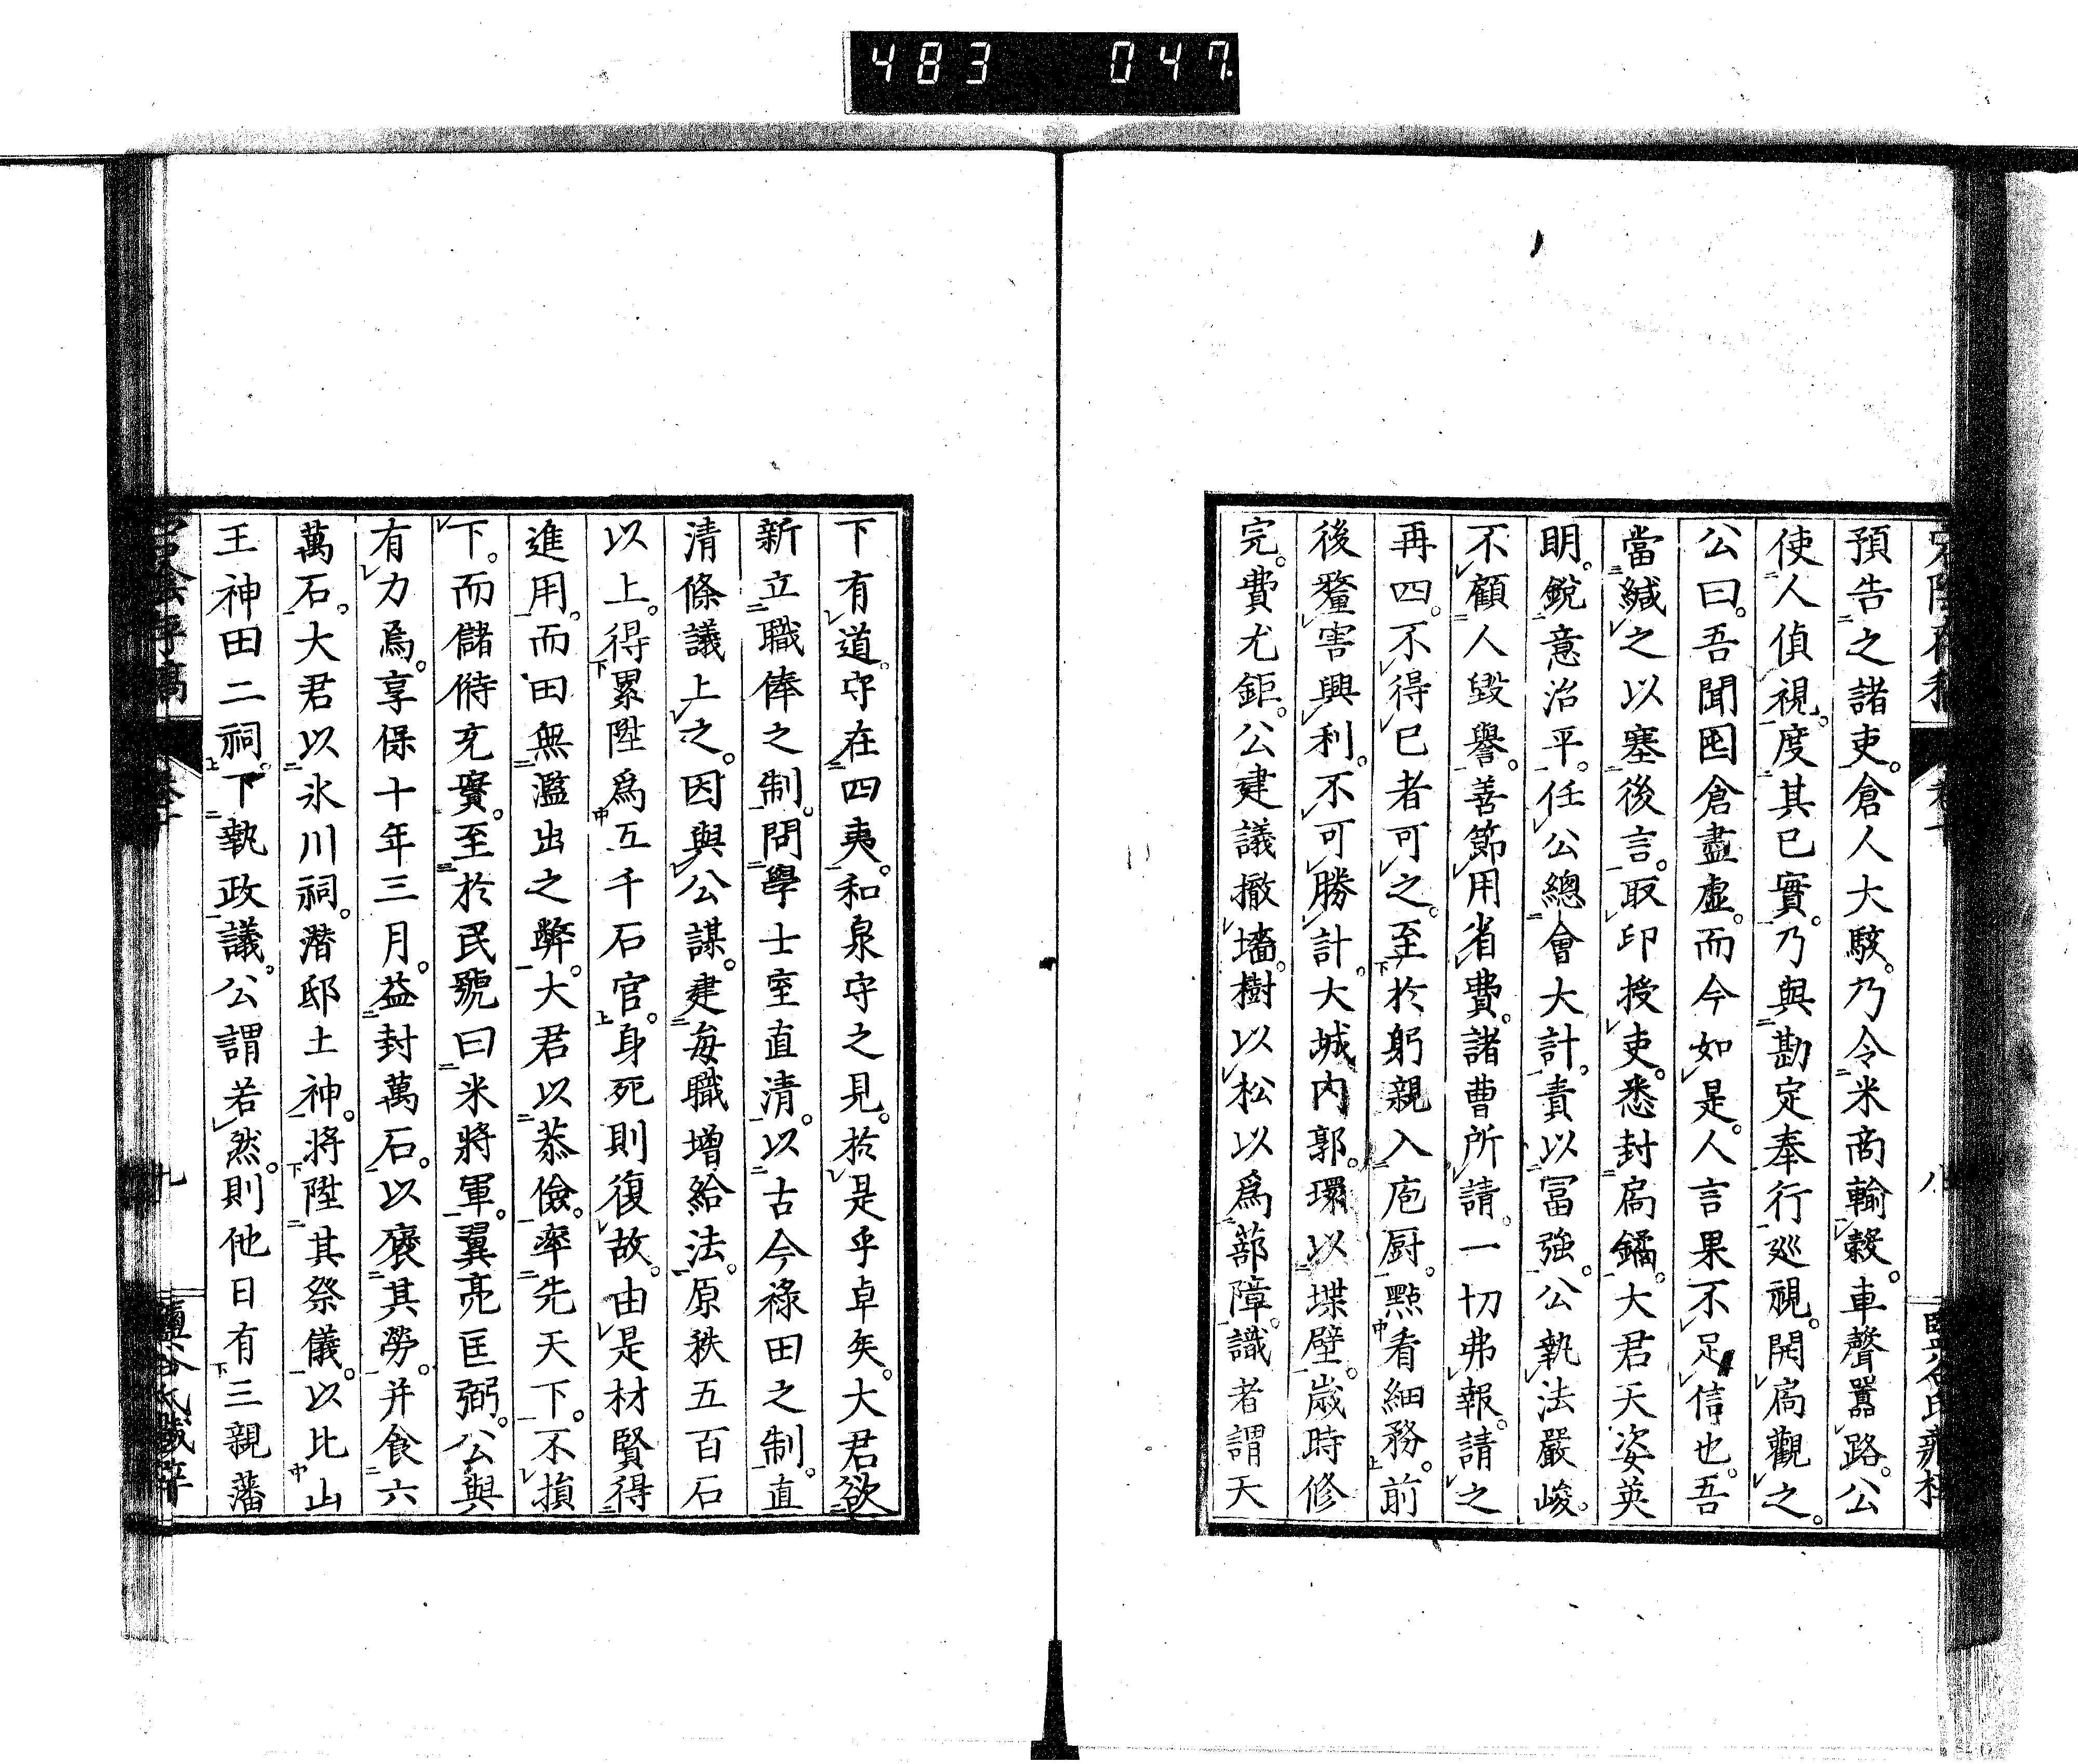 483 047
預告之諸吏。倉人大駭。乃令米商輸穀。車聲囂路。公
使人偵視。度其已實。乃與勘定奉行巡視。開扃觀之。
公曰。吾聞囷倉盡虛。而今如是。人言果不足信也。吾
當緘之以塞後言。取印授吏。悉封扃鐍。大君天姿英
明。銳意治平。任公總會大計。責以冨強。公執法嚴峻。
不顧人毀譽。善節用省費。諸曹所請。一切弗報。請之
再四。不得已者可之。至於躬親入庖厨。㸃看細務。前
後釐害興利。不可勝計。大城內郭。環以堞壁。歲時修
完。費尤鉅。公建議撤墻。樹以松以爲蔀障。識者謂天
下有道。守在四夷。和泉守之見。於是乎卓矣。大君欲
新立職俸之制。問學士室直清。以古今祿田之制。直
清條議上之。因與公謀。建每職增給法。原秩五百石
以上。得累陞爲五千石官。身死則復故。由是材賢得
進用。而田無濫出之弊。大君以恭儉。率先天下。不損
下。而儲偫充實。至於民號曰米將軍。翼亮匡弼。公與
有力焉。享保十年三月。益封萬石。以褒其勞。并食六
萬石。大君以氷川祠。潛邸土神。將陞其祭儀。以比山
王神田二祠。下執政議。公謂若然。則他日有三親藩
九